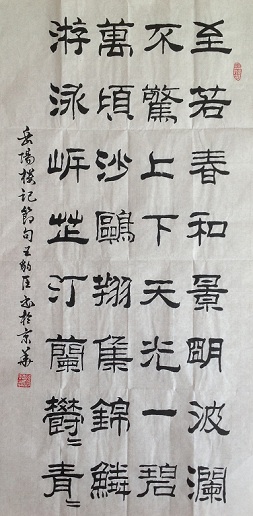 至若春和景眀波瀾
不驚上下天光一碧
萬頃沙鷗翔集錦鱗
游泳岸芷汀蘭欝〻青〻
岳陽樓記節句王臣書於京華